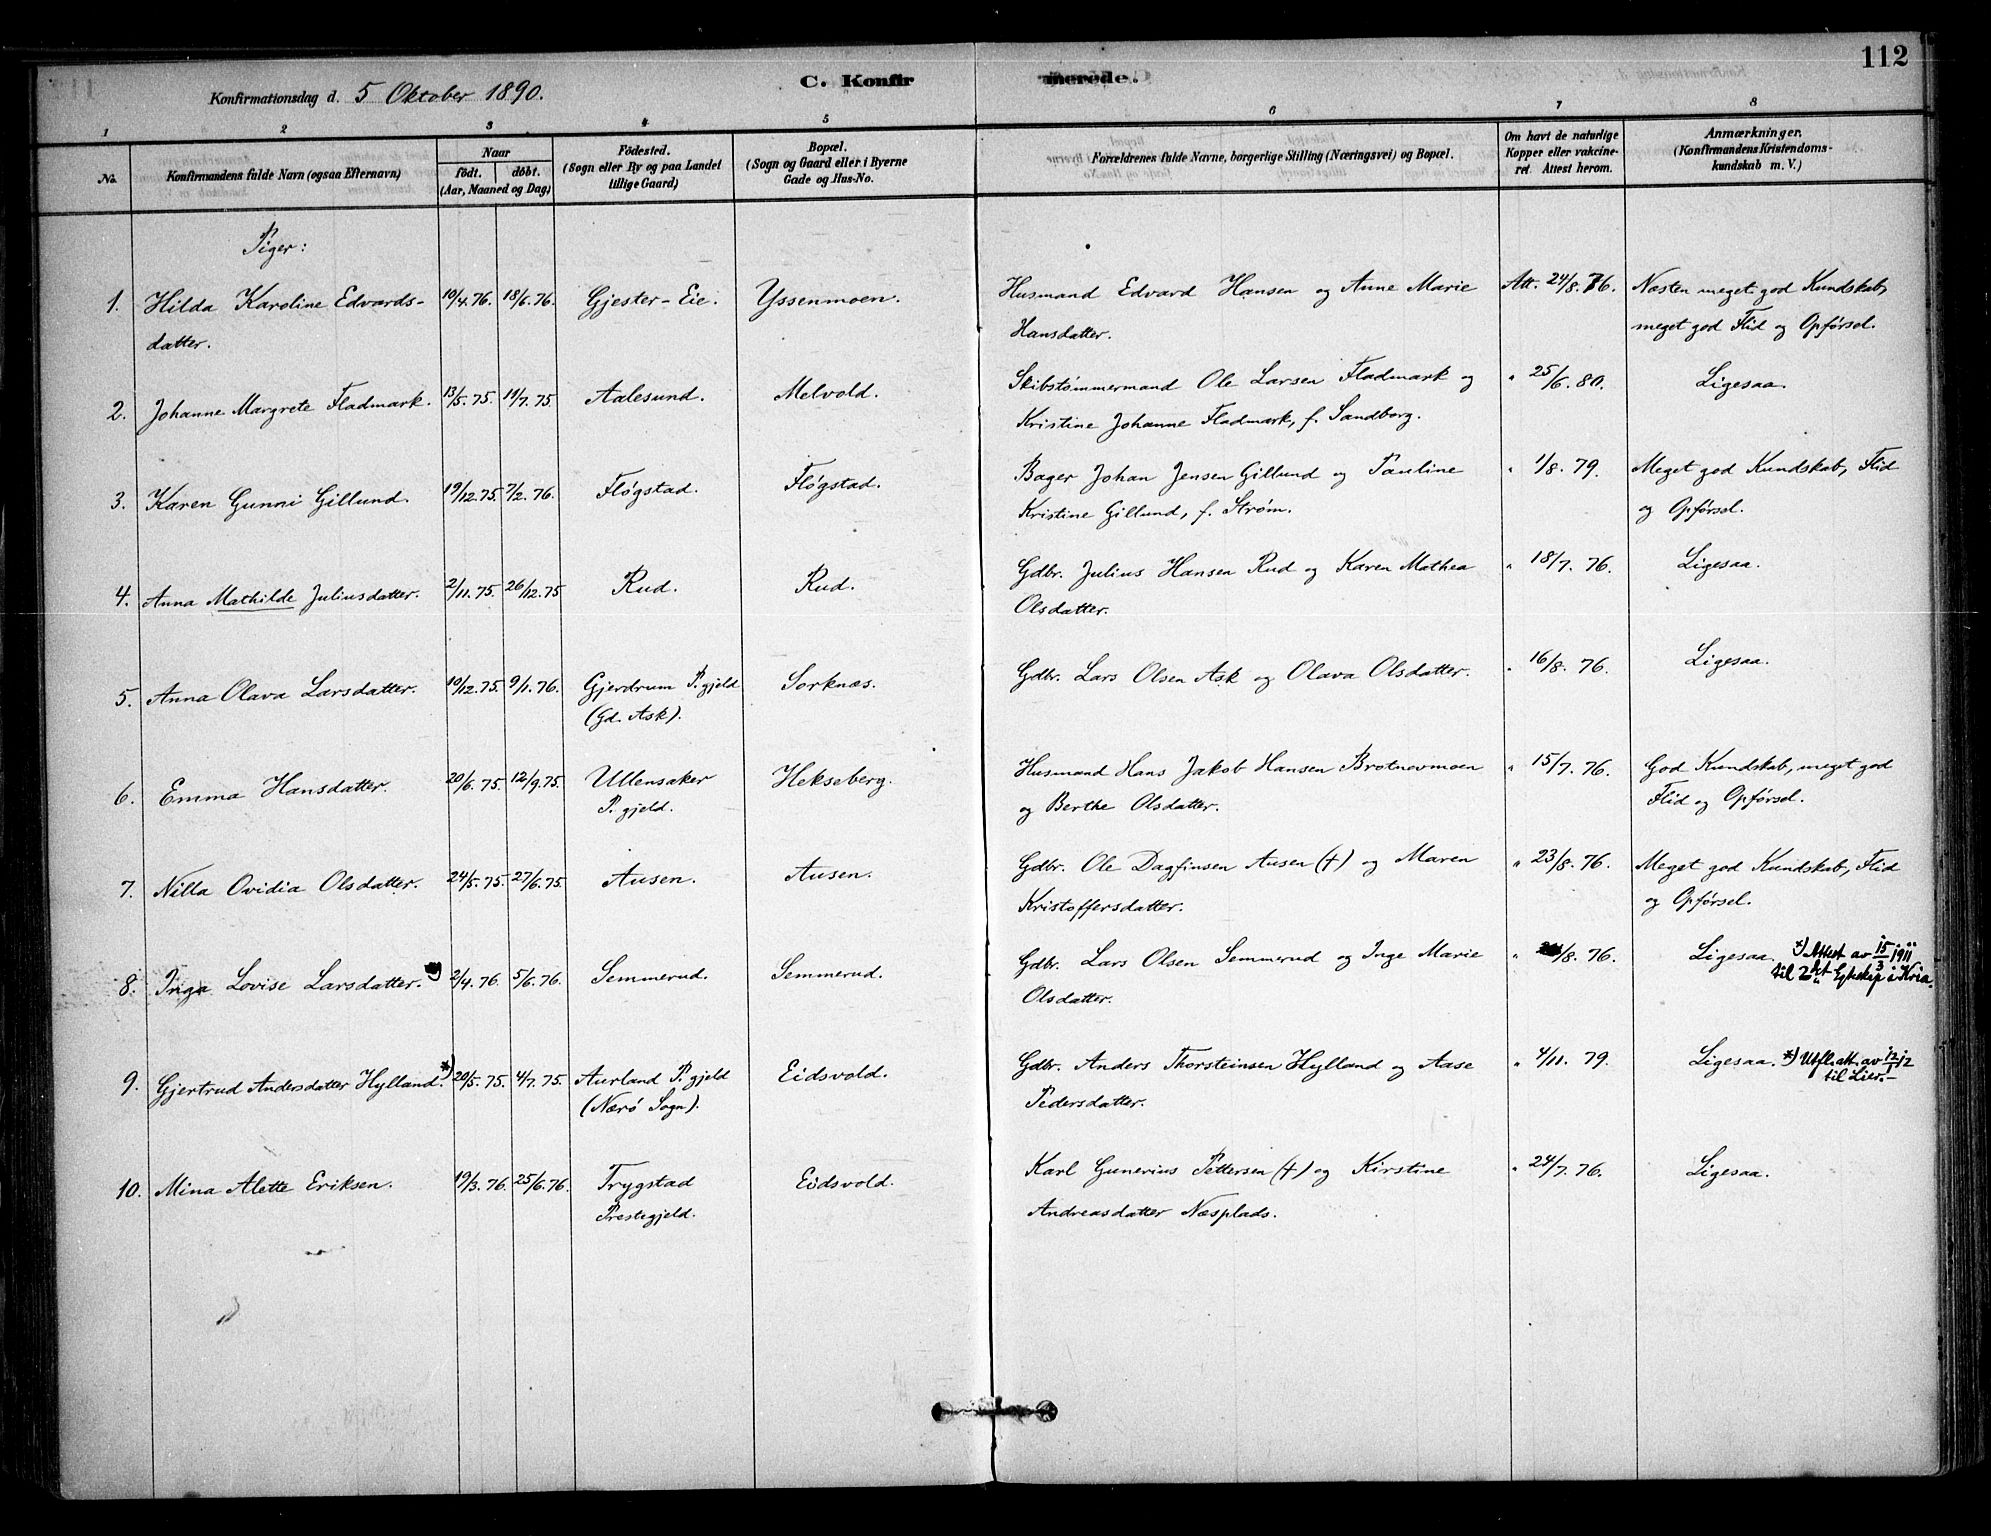 112
C. Konfirmerede.
Konfirmationsdag d. 5 Oktober 1890.
1 2 3 4 5 6 7 8
No. Konfirmandens fulde Navn (ogsaa Efternavn) Naar födt. döbt. (Aar, Maaned og Dag) Födested. (Sogn eller By og paa Landet tillige Gaard) Bopæl. (Sogn og Gaard eller i Byerne Gade og Hus-No. Forældrenes fulde Navne, borgerlige Stilling (Næringsvei) og Bopæl. Om havt de naturlige Kopper eller vakcineret. Attest herom. Anmærkninger. (Konfirmandens Kristendomskundskab m. V.)
Piger:
1. Hilda Karoline Edvards- 19/4. 76. 18/6. 76. Gjester-Eie. Yssenmoen. Husmand Edvard Hansen og Anne Marie Att. 24/8. 76. Næsten meget god Kundskab,
datter. Hansdatter. meget god Flid og Opførsel.
2. Johanne Margrete Fladmark. 13/5. 75. 19/7. 75 Aalesund. Melvold. Skibstømmermand Ole Larsen Fladmark og " 25/6. 80. Ligesaa.
Kristine Johanne Fladmark, f. Sandborg.
3. Karen Gunni Gillund. 19/12. 75. 7/2. 76. Fløgstad. Fløgstad. Bager Johan Jensen Gillund og Pauline " 1/8. 79. Meget god Kundskab, Flid
Kristine Gillund, f. Strøm. og Opførsel.
4. Anna Mathilde Juliusdatter. 2/11. 75. 26/12. 75 Rud. Rud. Gdbr. Julius Hansen Rud og Karen Mathea " 18/7. 76. Ligesaa.
Olsdatter.
5. Anna Olava Larsdatter. 19/12. 75. 9/1. 76. Gjerdrum P.gjeld Sorknæs. Gdbr. Lars Olsen Ask og Olava Olsdatter. " 16/8. 76. Ligesaa.
(Gd. Ask).
6. Emma Hansdatter. 20/6. 75. 12/9. 75. Ullensaker Hekseberg. Husmand Hans Jakob Hansen Brotnevmoen " 15/7. 76. God Kundskab, meget god
P. gjeld. og Berthe Olsdatter. Flid og Opførsel.
7. Nilla Ovidia Olsdatter. 24/5. 75. 27/6. 75. Ausen. Ausen. Gdbr. Ole Dagfinsen Ausen (†) og Maren " 23/8. 76. Meget god Kundskab, Flid
Kristoffersdatter. og Opførsel.
8. Inga Lovise Larsdatter. 2/4. 76. 5/6. 76. Semmerud. Semmerud. Gdbr. Lars Olsen Semmerud og Inge Marie " /8. 76. Ligesaa. *) Attest av 15/3 1911
Olsdatter. til 2det Egteskap i Kria.
9. Gjertrud Andersdatter Hylland. *) 20/5. 75. 4/7. 75. Aurland P. gjeld Eidsvold. Gdbr. Anders Thorsteinsen Hylland og Aase " 4/11. 79. Ligesaa. *) Utfl.att. av 12/1 12
(Nærø Sogn). Pedersdatter. til Lier.-
10. Mina Alette Eriksen. 19/3. 76. 25/6. 76. Trygstad Eidsvold. Karl Gunerius Pettersen (†) og Kirstine " 24/7. 76. Ligesaa.
Prestegjeld. Andreasdatter Næsplads.